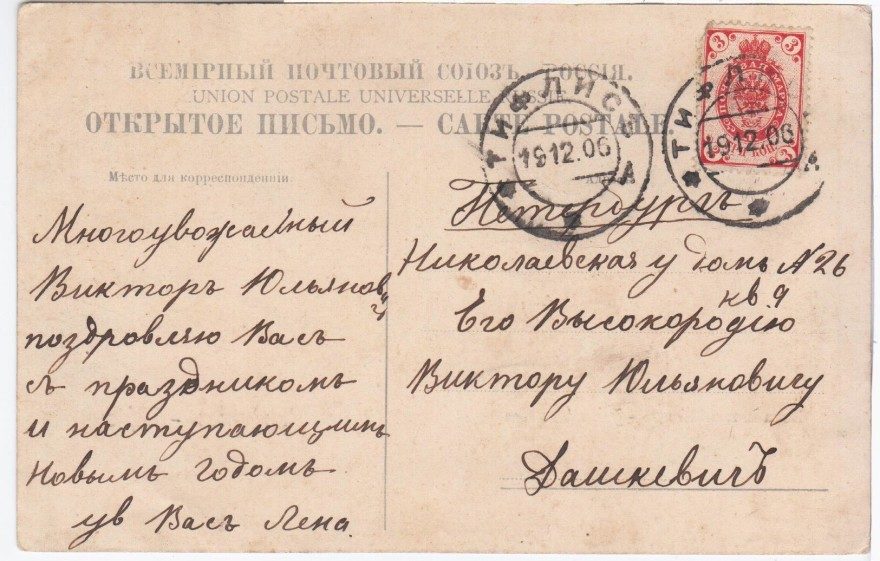 ВСЕМІРНЫЙ ПОЧТОВЫЙ СОЮЗЪ. РОССІЯ.
UNION POSTALE UNIVERSELLE. RUSSIE.
ОТКРЫТОЕ ПИСЬМО. — CARTE POSTALE
3 3
ПОЧТОВАЯ МАРКА
3 3
ТИФЛИСЪ
19.12.06
А
ТИФЛ
19.12.06
А
Мѣсто для корреспонденціи.
Многоуважаемый
Викторъ Юльянович
поздровляю Васъ
съ праздникомъ
и наступающимъ
Новымъ годомъ
ув Васъ Лена
Петербургъ
Николаевская у домъ N 26
кв 9
Его Высокородію
Виктору Юльяновичу
Дашкевичъ